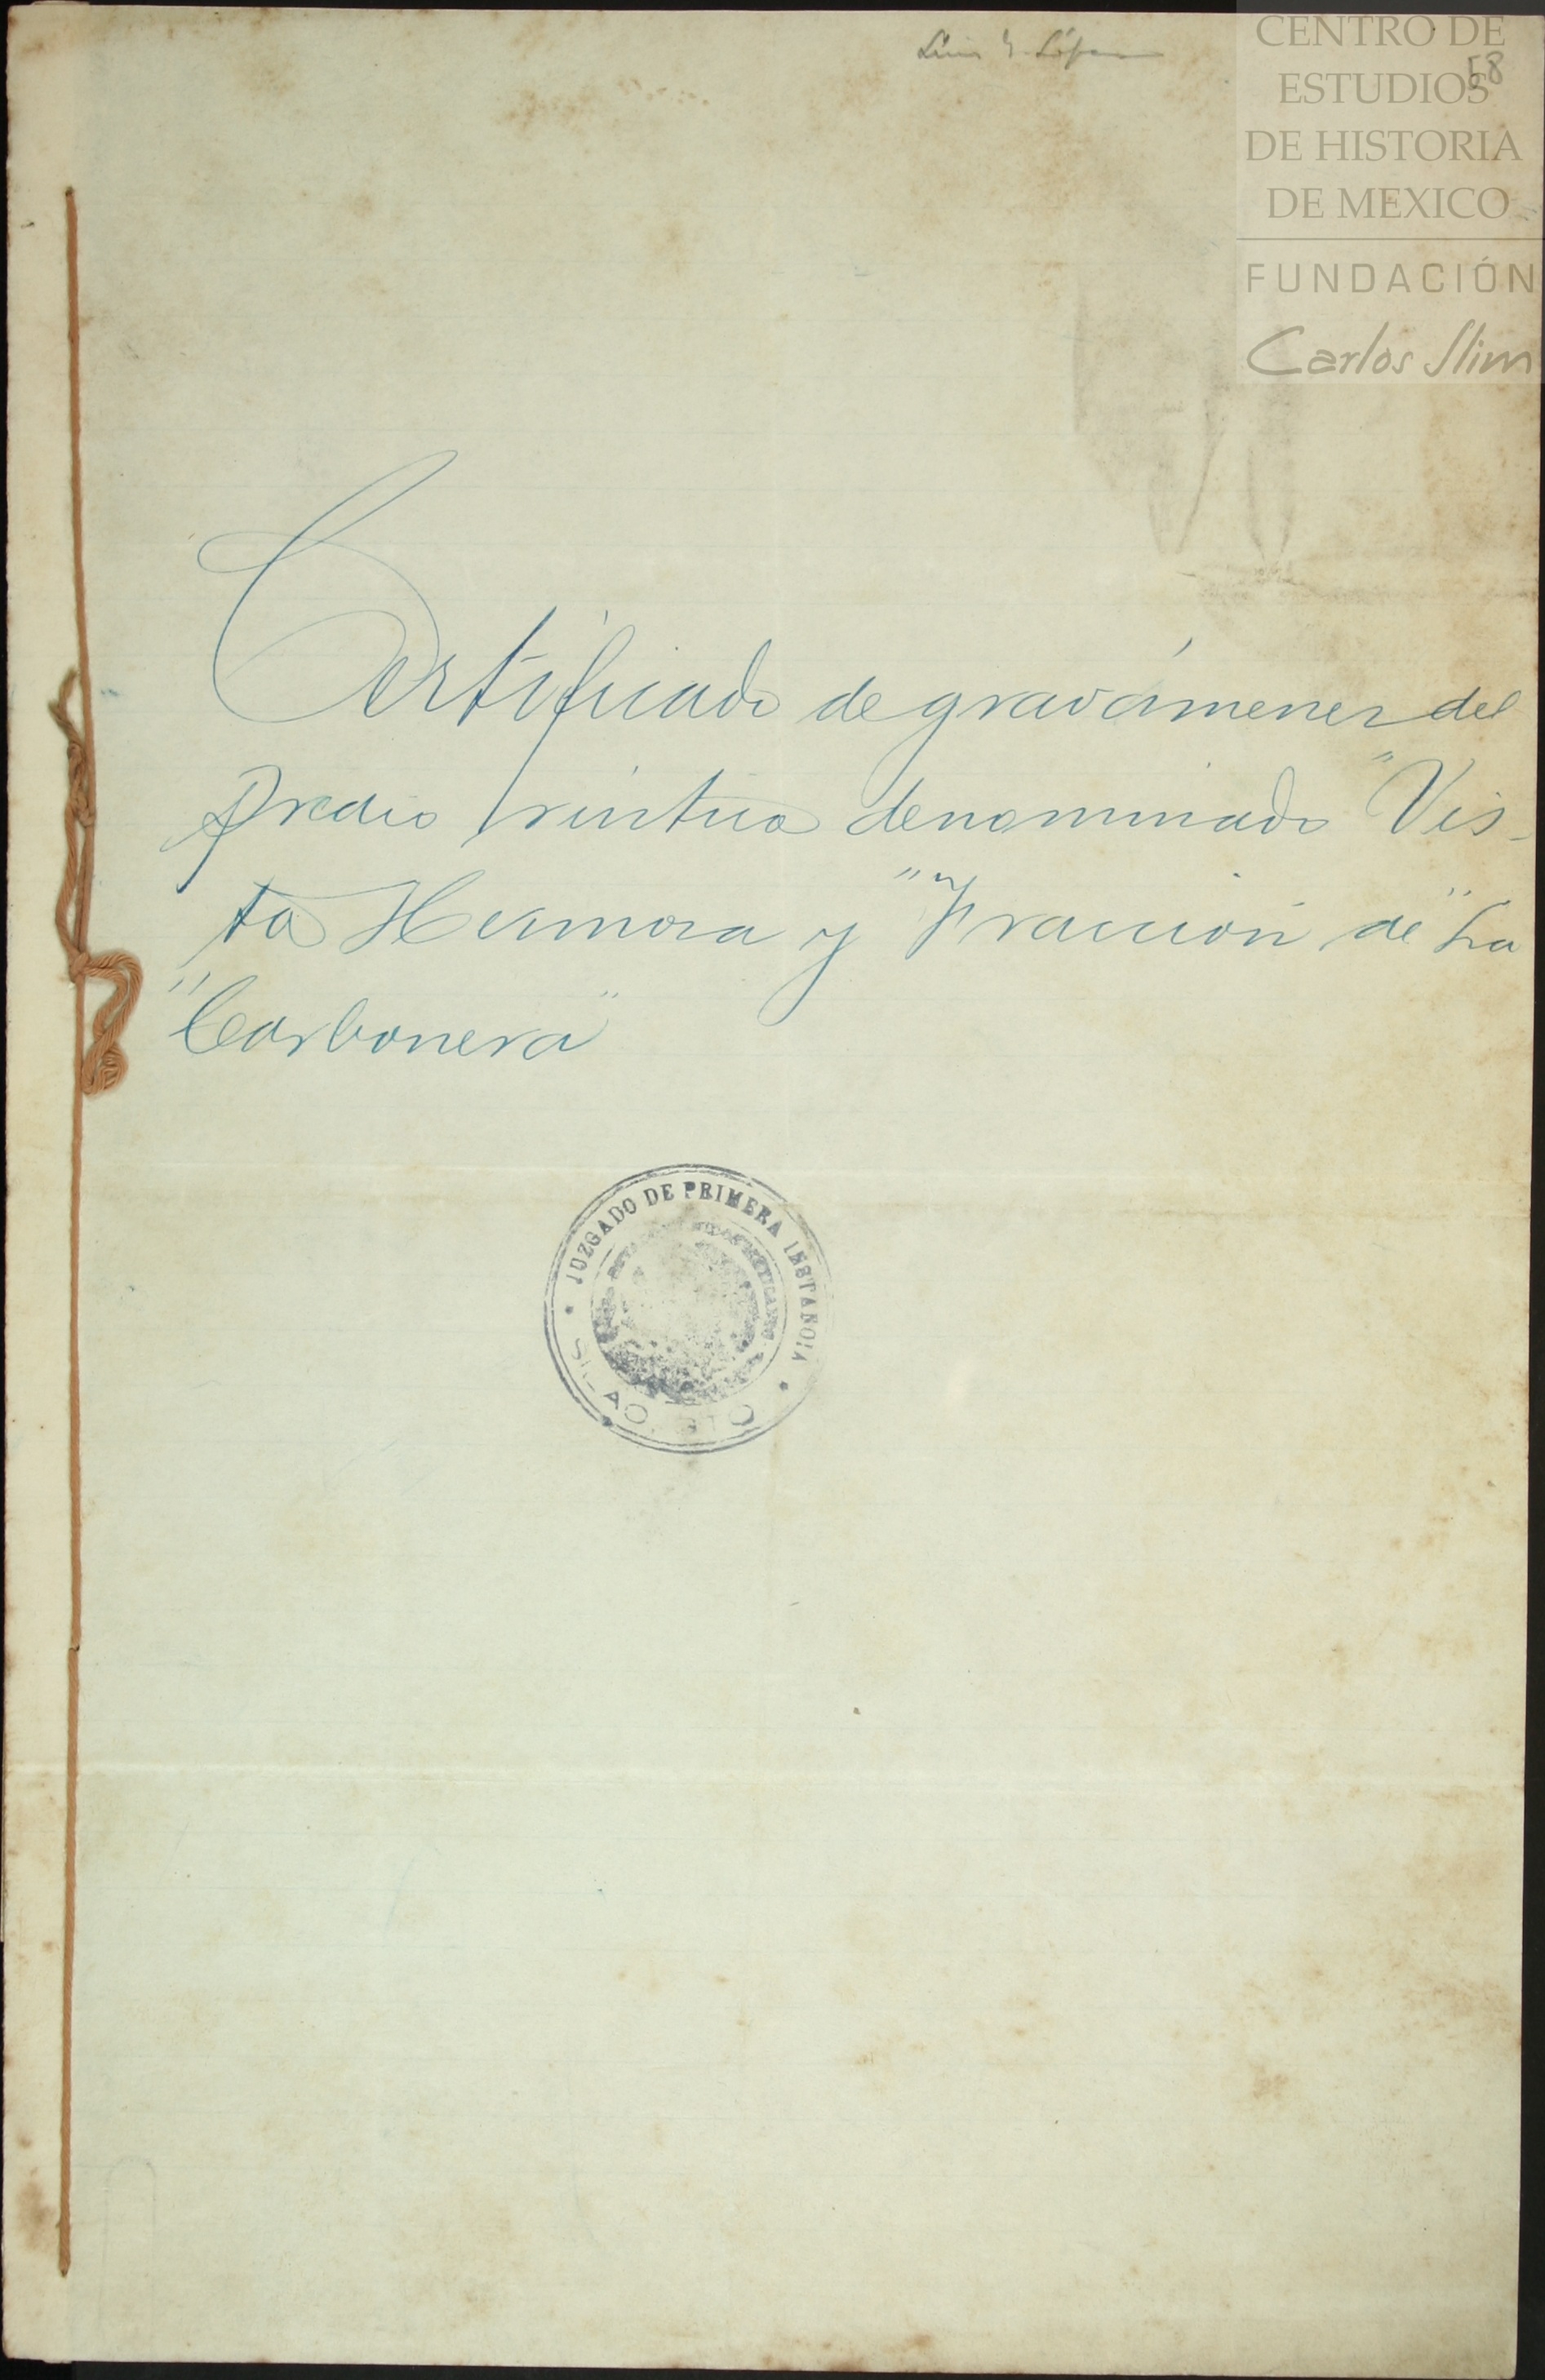 Luis G. López
58
CENTRO DE
ESTUDIOS
DE HISTORIA
DE MEXICO
FUNDACIÓN
Carlos Slim
Certificado de gravámenes del
predio rústico denominado "Vis-
ta Hermosa y" "Fracción de "La
"Carbonera"
JUZGADO DE PRIMERA INSTANCIA
ESTADOS UNIDOS MEXICANOS
SILAO, GTO